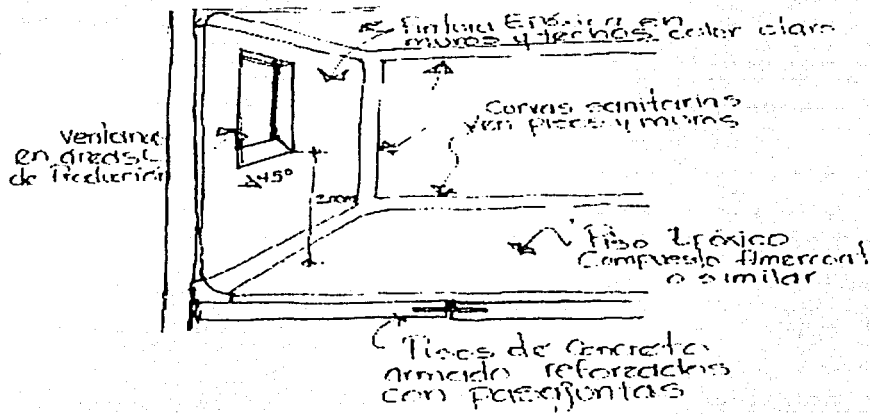 Pintura Epóxica en
muros y techos color claro
Curvas sanitarias
en pisos y muros
Ventana
en areas
de Producción
45°
Piso Epóxico
Compuesto
o similar
Pisos de Concreto
armado reforzados
con pasajuntas